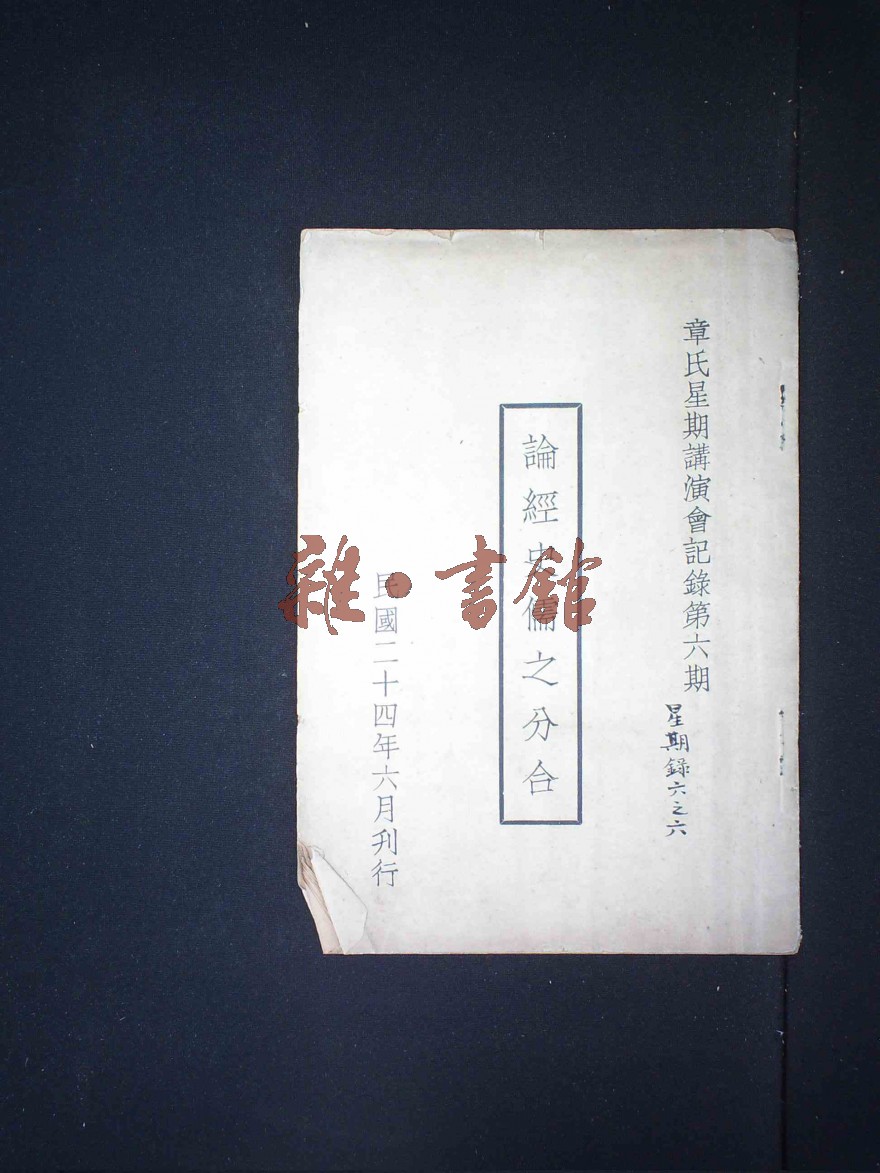 章氏星期講演會記錄第六期
星期錄六之六
論經史儒之分合
民國二十四年六月刊行
雜·書館